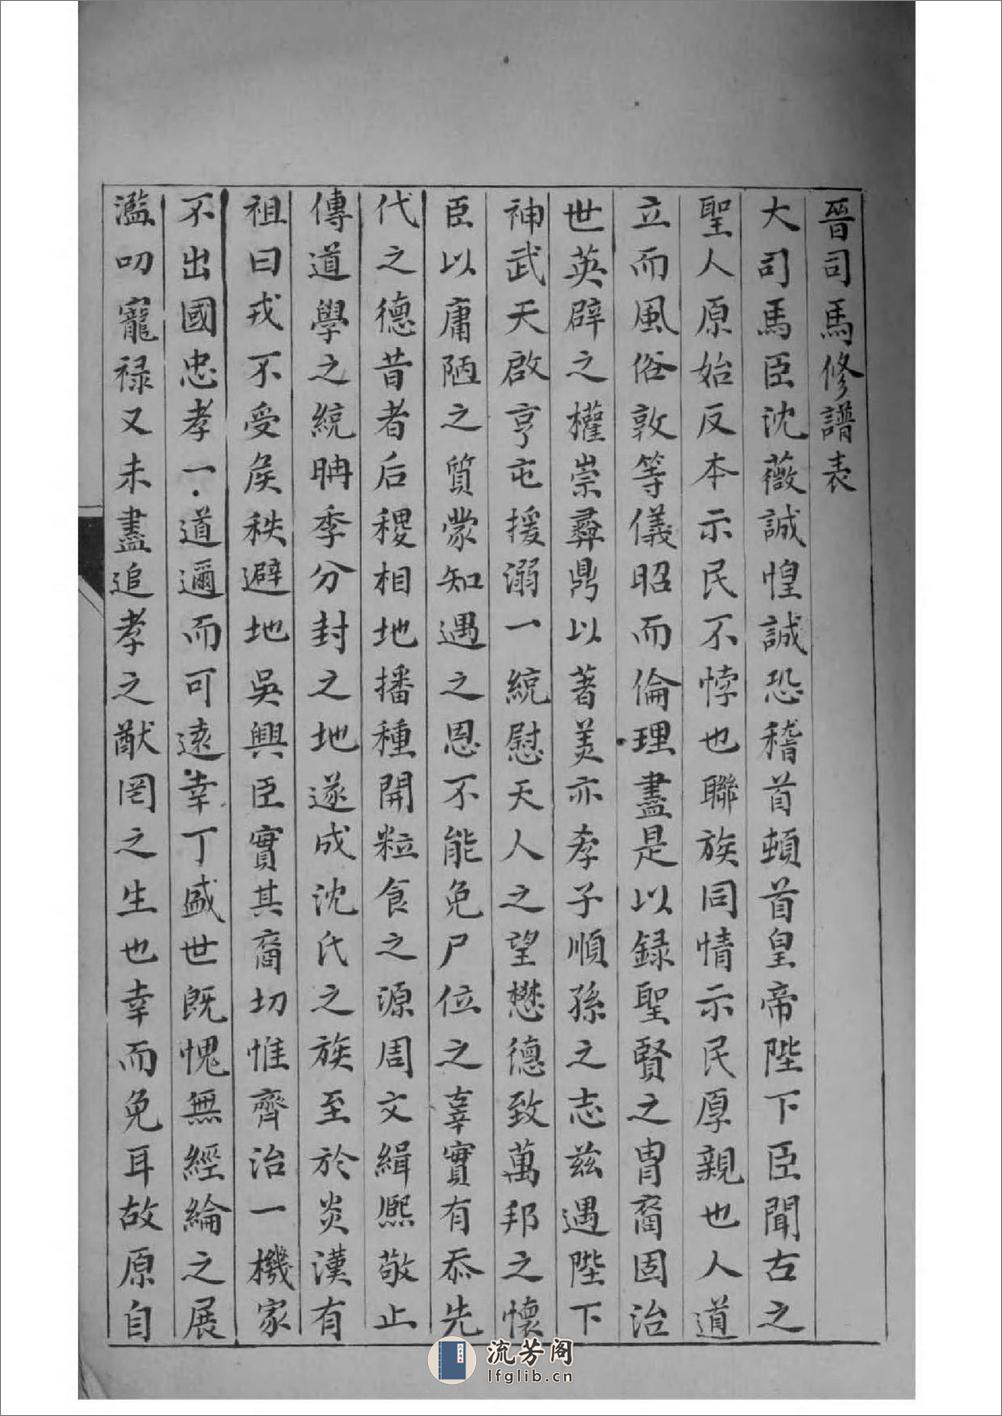 晉司馬修譜表
大司馬臣沈薇誠惶誠恐稽首頓首皇帝陛下臣聞古之
聖人原始反本示民不悖也聯族同情示民厚親也人道
立而風俗敦等儀昭而倫理盡是以錄聖賢之胄裔固治
世英辟之權崇彞鼎以著美亦孝子順孫之志茲遇陛下
神武天啟亨屯援溺一統慰天人之望懋德致萬邦之懷
臣以庸陋之質蒙知遇之恩不能免尸位之辜實有忝先
代之德昔者后稷相地播種開粒食之源周文緝熙敬止
傳道學之統聃季分封之地遂成沈氏之族至於炎漢有
祖曰戎不受矦秩避地吳興臣實其裔切惟齊治一機家
不出國忠孝一道邇而可遠幸丁盛世既愧無經綸之展
濫叨寵祿又未盡追孝之猷罔之生也幸而免耳故原自
流芳阁
lfglib.cn